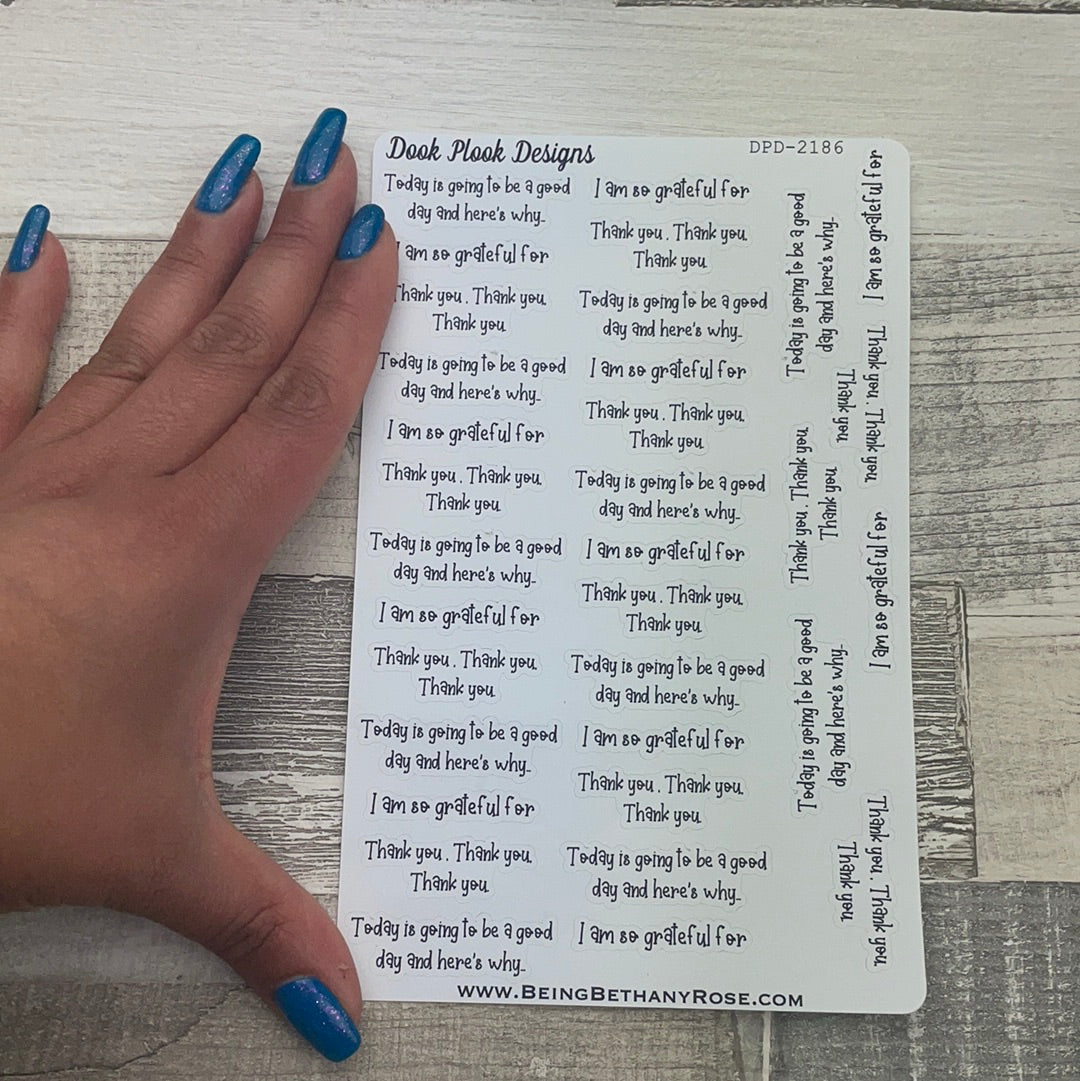 Dook Plook Designs
DPD-2186
Today is going to be a good
day and here's why..
I am so grateful for
Thank you. Thank you.
Thank you.
Today is going to be a good
day and here's why..
I am so grateful for
Thank you. Thank you.
Thank you.
Today is going to be a good
day and here's why..
I am so grateful for
Thank you. Thank you.
Thank you.
Today is going to be a good
day and here's why..
I am so grateful for
Thank you. Thank you.
Thank you.
Today is going to be a good
day and here's why..
I am so grateful for
Thank you. Thank you.
Thank you.
Today is going to be a good
day and here's why..
I am so grateful for
Thank you. Thank you.
Thank you.
Today is going to be a good
day and here's why..
I am so grateful for
Thank you. Thank you.
Thank you.
Today is going to be a good
day and here's why..
I am so grateful for
Thank you. Thank you.
Thank you.
Today is going to be a good
day and here's why..
I am so grateful for
Today is going to be a good
day and here's why..
I am so grateful for
Thank you. Thank you.
Thank you.
Thank you. Thank you.
Thank you.
I am so grateful for
Today is going to be a good
day and here's why..
Thank you. Thank you.
Thank you.
www.BeingBethanyRose.com